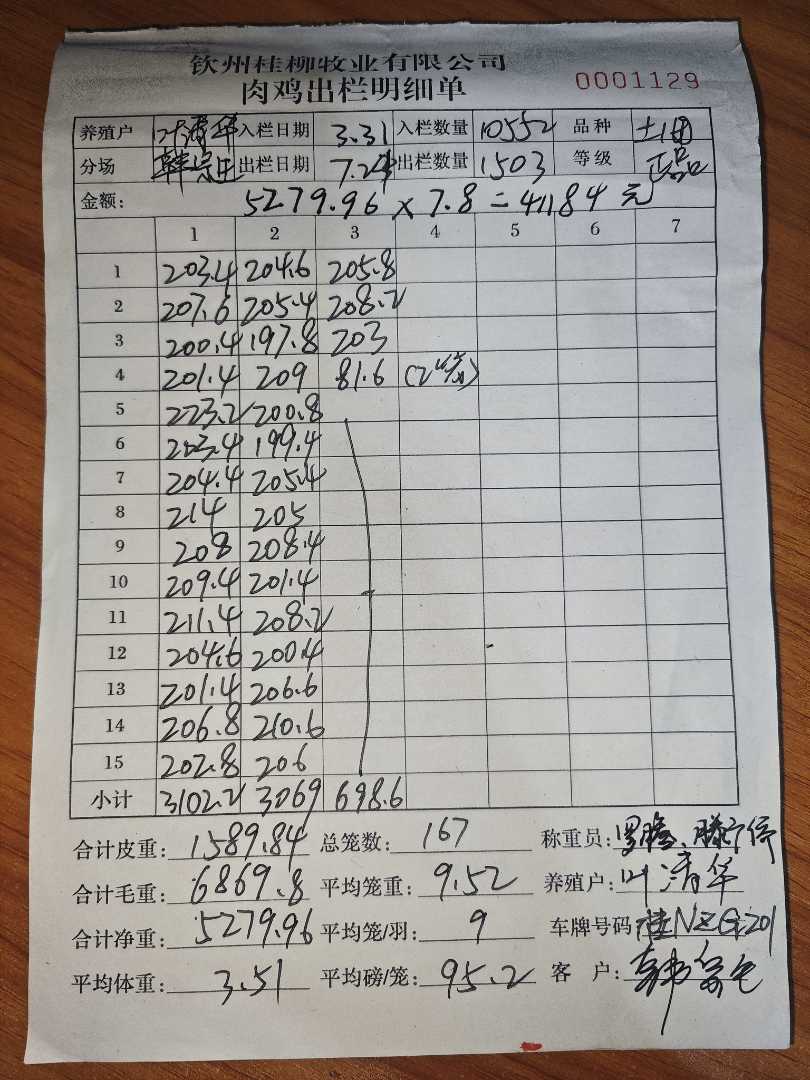 钦州桂柳牧业有限公司
肉鸡出栏明细单 0001129
养殖户 叶清华 入栏日期 3.31 入栏数量 10552 品种
分场 出栏日期 7.24 出栏数量 1503 等级 正品
金额: 5279.96 × 7.8 = 41184 元
1 2 3 4 5 6 7
1 203.4 204.6 205.8
2 207.6 205.4 208.2
3 200.4 197.8 203
4 201.4 209 81.6
5 223.2 200.8
6 203.4 199.4
7 204.4 205.4
8 214 205
9 208 208.4
10 209.4 201.4
11 211.4 208.2
12 204.6 200.4
13 201.4 206.6
14 206.8 210.6
15 202.8 206
小计 3102.2 3069 698.6
合计皮重: 1589.84 总笼数: 167 称重员:
合计毛重: 6869.8 平均笼重: 9.52 养殖户: 叶清华
合计净重: 5279.96 平均笼/羽: 9 车牌号码:
平均体重: 3.51 平均磅/笼: 95.2 客 户: